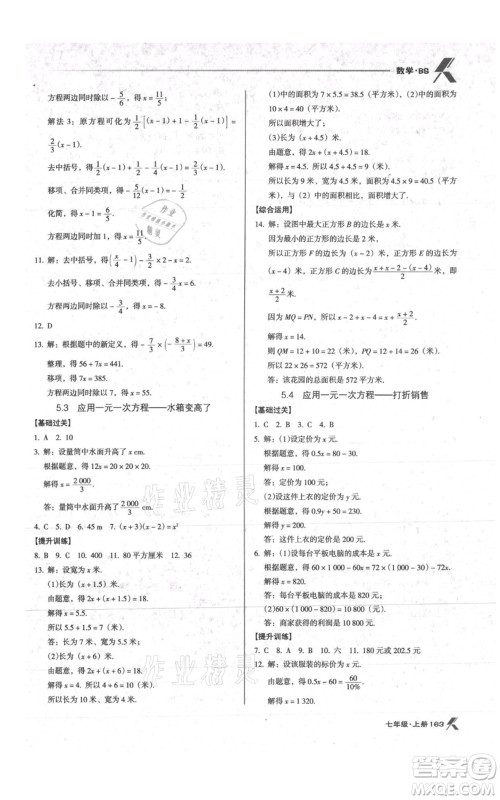 数学·BS
方程两边同时除以 -5/6，得 x=11/5.
解法 3：原方程可化为 1/2[(x-1)+1-1/2(x-1)]=
2/3(x-1).
去中括号，得 1/2(x-1)+1/2-1/4(x-1)=2/3(x-1).
移项、合并同类项，得 -5/12(x-1)=-1/2.
化简，得 x-1=6/5.
方程两边同时加 1，得 x=11/5.
11. 解：去中括号，得(x/4-1)-3-x=2.
去小括号、移项、合并同类项，得 -3/4x=6.
方程两边同时除以 -3/4，得 x=-8.
12. D
13. 解：根据题中的新定义，得 -7/3×(-(8+x)/3)=49.
整理，得 56+7x=441.
移项，得 7x=385.
方程两边同时除以 7，得 x=55.
5.3 应用一元一次方程——水箱变高了
【基础过关】
1. A 2. 10
3. 解：设量筒中水面升高了 x cm.
根据题意，得 12x=20×20×20.
解得 x=2 000/3.
答：量筒中水面升高了 2 000/3 cm.
4. C 5. D 6. 45 m 7. (x+3)(x-2)=x²
【提升训练】
8. B 9. C 10. 400 11. 80 平方厘米 12. 36
13. 解：设宽为 x 米.
(1)长为(x+1.5)米.
由题意，得 2x+(x+1.5)=18.
解得 x=5.5.
所以长为 7 米，宽为 5.5 米.
答：长为 7 米，宽为 5.5 米.
(2)长为(x+6)米.
由题意，得 2x+(x+6)=18.
解得 x=4.
所以长为 10 米，宽为 4 米.
(1)中的面积为 7×5.5=38.5(平方米)，(2)中的面积为
10×4=40(平方米).
所以面积增大了.
(3)长为(x+4.5)米.
由题意，得 2x+(x+4.5)=18.
解得 x=4.5.
所以长为 9 米，宽为 4.5 米，面积为 4.5×9=40.5(平方米).
所以面积增大了.
【综合运用】
14. 解：设图中最大正方形 B 的边长是 x 米.
因为最小的正方形的边长是 2 米，
所以正方形 F 的边长为(x-2)米，正方形 E 的边长为
(x-4)米，正方形 C 的边长为 x+x-2-(x-4)/2 米，即
x+2/2 米.
因为 MQ=PN，所以 x-2+x-4=x+x+2/2.
解得 x=14.
则 QM=12+10=22(米)，PQ=12+14=26(米).
所以 22×26=572(平方米).
答：该花园的总面积是 572 平方米.
5.4 应用一元一次方程——打折销售
【基础过关】
1. C 2. B 3. A 4. C
5. 解：(1)设定价为 x 元.
根据题意，得 0.6x=60.
解得 x=100.
答：定价为 100 元.
(2)设这件衣服的进价为 x 元.
根据题意，得 x+10=60.
解得 x=50.
答：进价为 50 元.
6. 解：(1)设每台平板电脑的成本为 x 元.
根据题意，得 60×1 000-30=60x+10 770.
解得 x=820.
答：每台平板电脑的成本为 820 元.
(2)60×(1 000-820)=10 800(元).
答：商家获利了 10 800 元.
【提升训练】
7. C 8. A 9. B 10. 六 11. 180 元或 202.5 元
12. 解：设该服装的标价为 x 元.
由题意，得 0.5x-60=60/10%.
解得 x=1 320.
作业精灵
作业精灵
七年级·上册 163